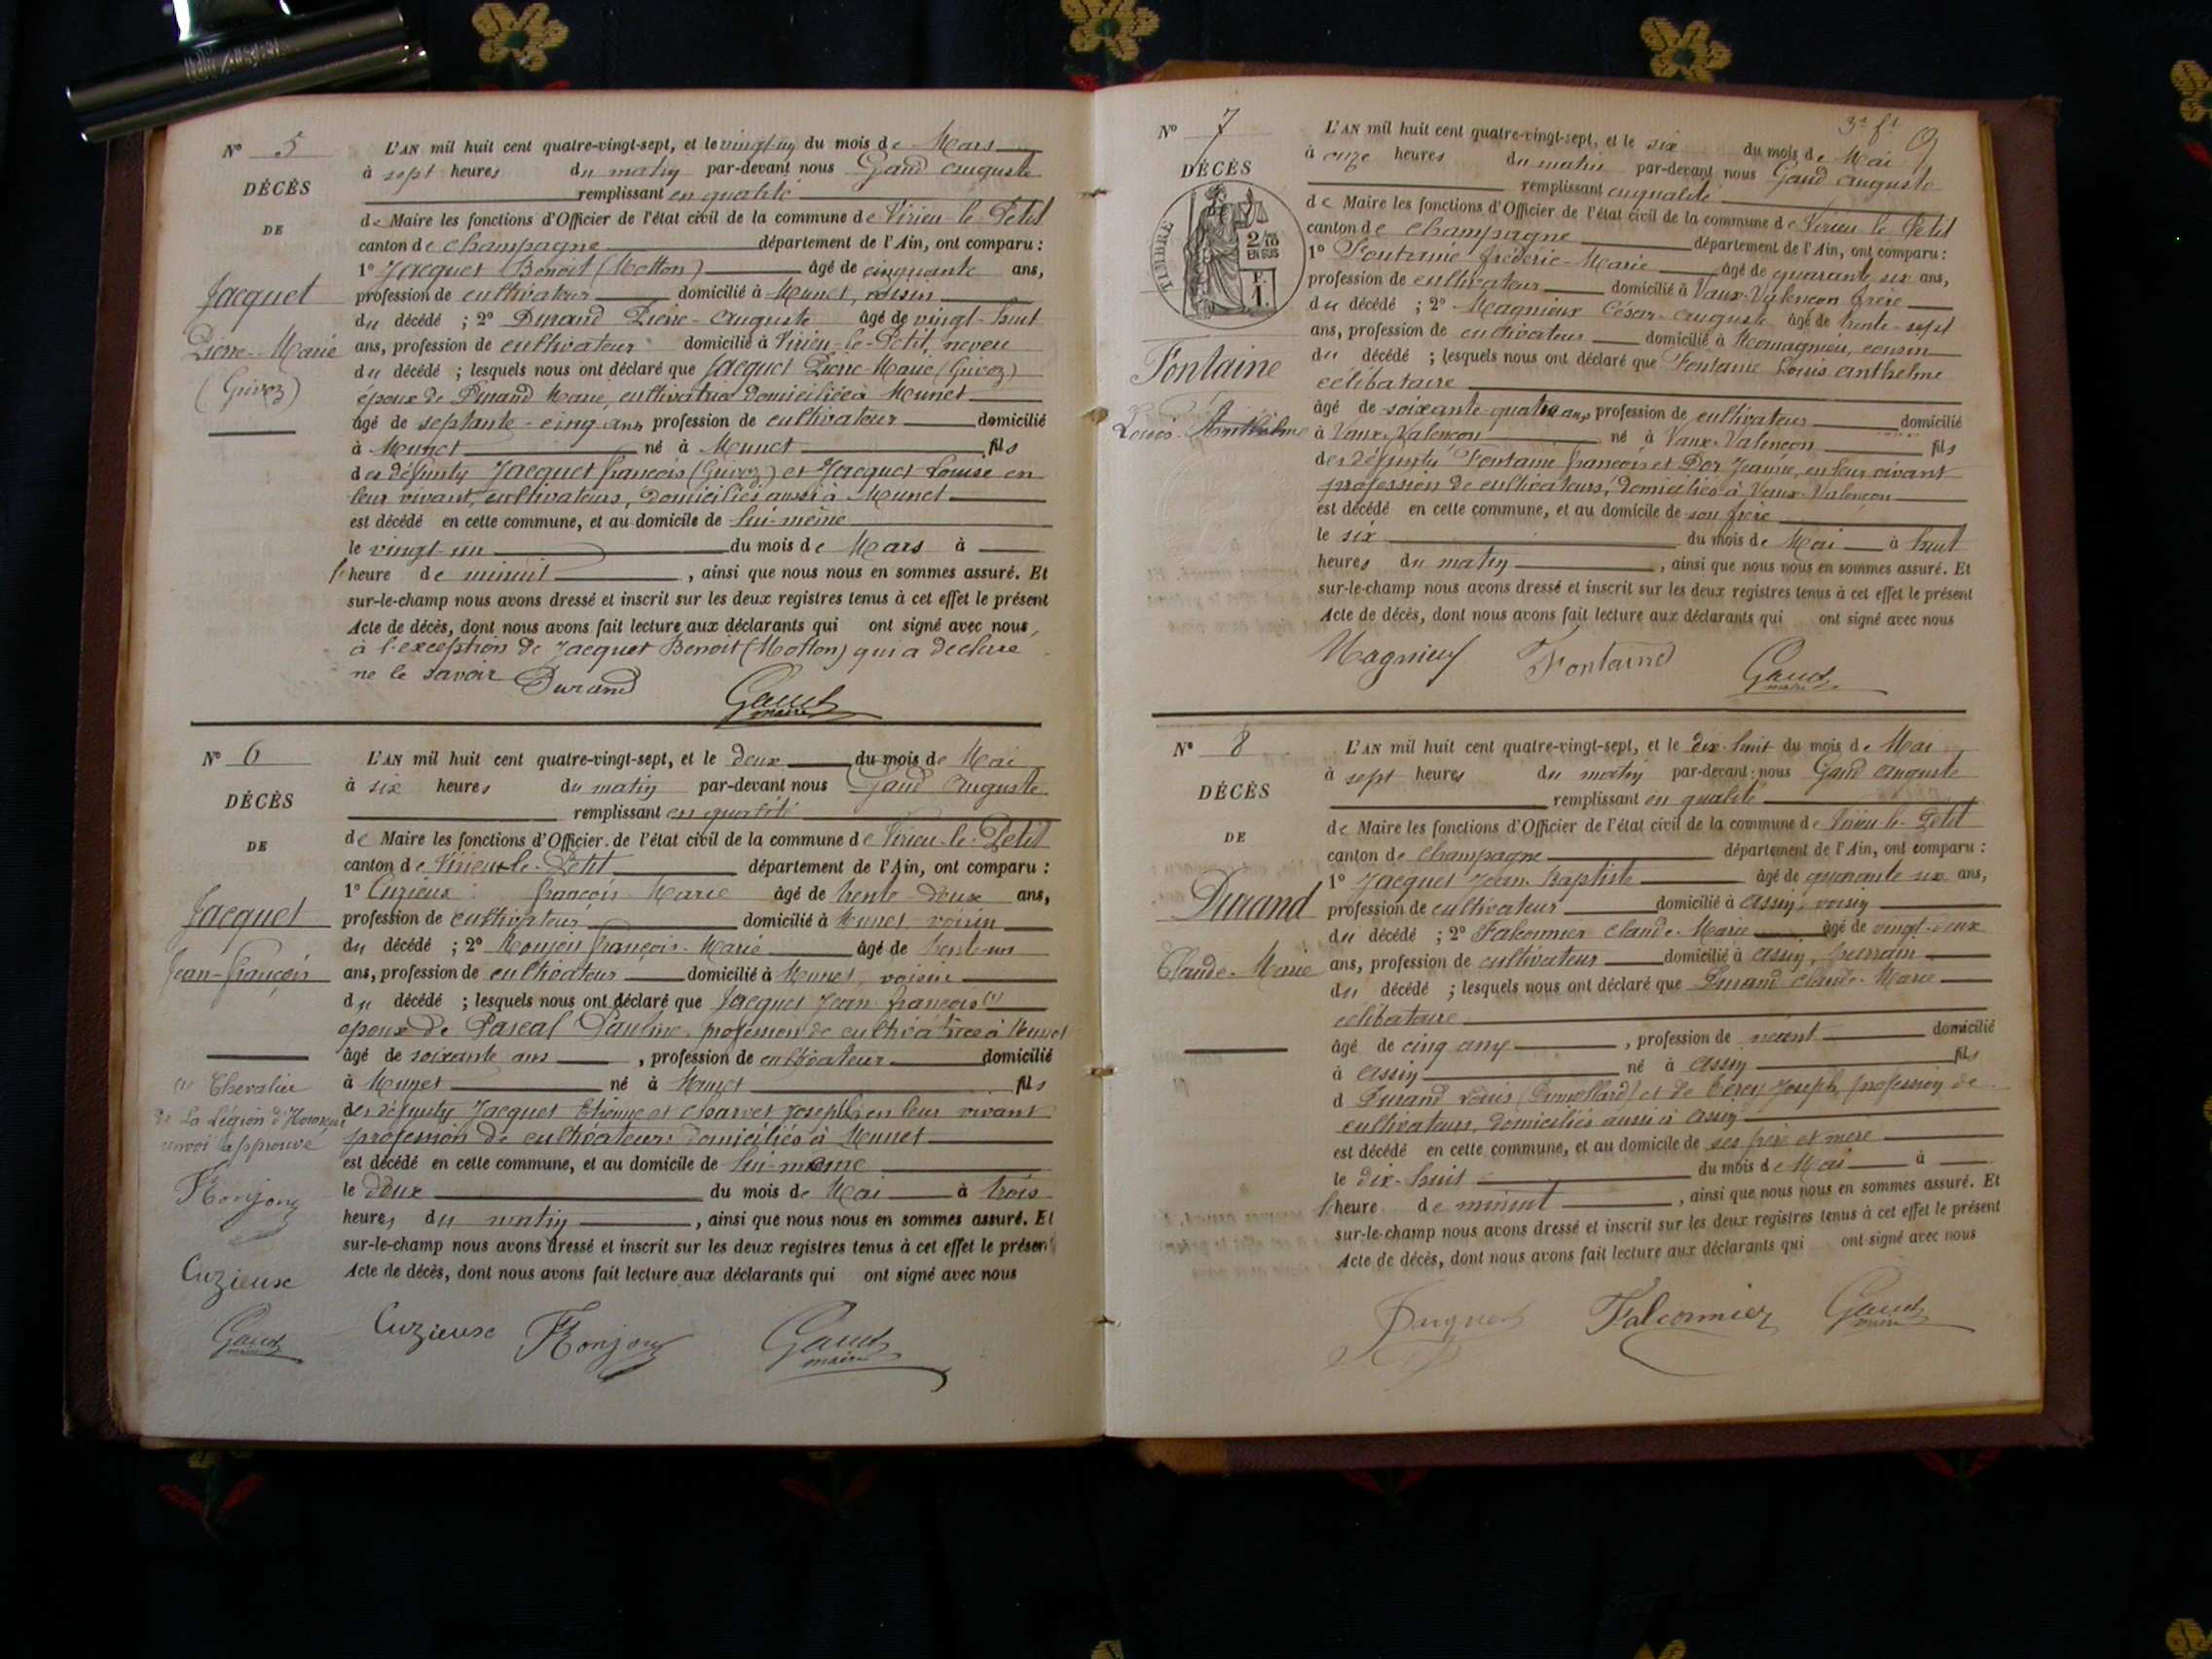 N° 5
DÉCÈS
DE
Jacquet
Pierre-Marie
(Grivoz)
L'AN mil huit cent quatre-vingt-sept, et le vingt-un du mois de Mars
à sept heures du matin par-devant nous Gaud Auguste
remplissant en qualité
de Maire les fonctions d'Officier de l'état civil de la commune de Virieu-le-Petit
canton de Champagne département de l'Ain, ont comparu :
1° Jacquet Benoit (Motton) âgé de cinquante ans,
profession de cultivateur domicilié à Munet, voisin
du décédé ; 2° Durand Pierre-Auguste âgé de vingt-huit
ans, profession de cultivateur domicilié à Virieu-le-Petit, neveu
du décédé ; lesquels nous ont déclaré que Jacquet Pierre Marie (Grivoz)
époux de Durand Marie, cultivatrice domiciliée à Munet
âgé de septante-cinq ans profession de cultivateur domicilié
à Munet né à Munet fils
des défunts Jacquet françois (Grivoz) et Jacquet Louise en
leur vivant, cultivateurs, domiciliés aussi à Munet
est décédé en cette commune, et au domicile de lui-même
le vingt-un du mois de Mars à
l'heure de minuit , ainsi que nous nous en sommes assuré. Et
sur-le-champ nous avons dressé et inscrit sur les deux registres tenus à cet effet le présent
Acte de décès, dont nous avons fait lecture aux déclarants qui ont signé avec nous,
à l'exception de Jacquet Benoit (Motton) qui a déclaré
ne le savoir
Durand Gaud
maire
N° 6
DÉCÈS
DE
Jacquet
Jean-françois
(1) Chevalier
de La Légion d'Honneur
renvoi approuvé
Monjoin
Cuzieux
Gaud
L'AN mil huit cent quatre-vingt-sept, et le deux du mois de Mai
à six heures du matin par-devant nous Gaud Auguste
remplissant en qualité
de Maire les fonctions d'Officier de l'état civil de la commune de Virieu-le-Petit
canton de Virieu-le-Petit département de l'Ain, ont comparu :
1° Cuzieux françois-Marie âgé de trente-deux ans,
profession de cultivateur domicilié à Munet, voisin
du décédé ; 2° Monjoin françois-Marie âgé de trente-un
ans, profession de cultivateur domicilié à Munet, voisin
du décédé ; lesquels nous ont déclaré que Jacquet Jean françois (1)
époux de Pascal Pauline, profession de cultivatrice à Munet
âgé de soixante ans , profession de cultivateur domicilié
à Munet né à Munet fils
des défunts Jacquet Etienne et Charvet Josephe en leur vivant
profession de cultivateurs domiciliés à Munet
est décédé en cette commune, et au domicile de lui-même
le deux du mois de Mai à trois
heures du matin , ainsi que nous nous en sommes assuré. Et
sur-le-champ nous avons dressé et inscrit sur les deux registres tenus à cet effet le présent
Acte de décès, dont nous avons fait lecture aux déclarants qui ont signé avec nous
Cuzieux Monjoin Gaud
maire
3e ft 9
N° 7
DÉCÈS
TIMBRE
2/10
EN SUS
Fontaine
Louis-Anthelme
L'AN mil huit cent quatre-vingt-sept, et le six du mois de Mai
à onze heures du matin par-devant nous Gaud Auguste
remplissant en qualité
de Maire les fonctions d'Officier de l'état civil de la commune de Virieu-le-Petit
canton de Champagne département de l'Ain, ont comparu :
1° Fontaine frédéric-Marie âgé de quarante six ans,
profession de cultivateur domicilié à Vaux-Valencon frère
du décédé ; 2° Magnieux César-Auguste âgé de trente-sept
ans, profession de cultivateur domicilié à Romagnieu, cousin
du décédé ; lesquels nous ont déclaré que Fontaine Louis anthelme
célibataire
âgé de soixante-quatre ans, profession de cultivateur domicilié
à Vaux-Valencon né à Vaux-Valencon fils
des défunts Fontaine françois et Dor Jeanne, en leur vivant
profession de cultivateurs, domiciliés à Vaux-Valencon
est décédé en cette commune, et au domicile de son frère
le six du mois de Mai à huit
heures du matin , ainsi que nous nous en sommes assuré. Et
sur-le-champ nous avons dressé et inscrit sur les deux registres tenus à cet effet le présent
Acte de décès, dont nous avons fait lecture aux déclarants qui ont signé avec nous
Magnieux Fontaine Gaud
maire
N° 8
DÉCÈS
DE
Durand
Claude-Marie
L'AN mil huit cent quatre-vingt-sept, et le dix-huit du mois de Mai
à sept heures du matin par-devant nous Gaud Auguste
remplissant en qualité
de Maire les fonctions d'Officier de l'état civil de la commune de Virieu-le-Petit
canton de Champagne département de l'Ain, ont comparu :
1° Jacquet Jean Baptiste âgé de quarante six ans,
profession de cultivateur domicilié à Assin, voisin
du décédé ; 2° Falconnier Claude-Marie âgé de vingt-deux
ans, profession de cultivateur domicilié à Assin, parrain
du décédé ; lesquels nous ont déclaré que Durand Claude-Marie
célibataire
âgé de cinq ans , profession de néant domicilié
à Assin né à Assin fils
d Durand Louis et de Josephe, profession de
cultivateurs, domiciliés aussi à Assin
est décédé en cette commune, et au domicile de ses père et mère
le dix-huit du mois de Mai à
l'heure de minuit , ainsi que nous nous en sommes assuré. Et
sur-le-champ nous avons dressé et inscrit sur les deux registres tenus à cet effet le présent
Acte de décès, dont nous avons fait lecture aux déclarants qui ont signé avec nous
Jaquet Falconnier Gaud
maire